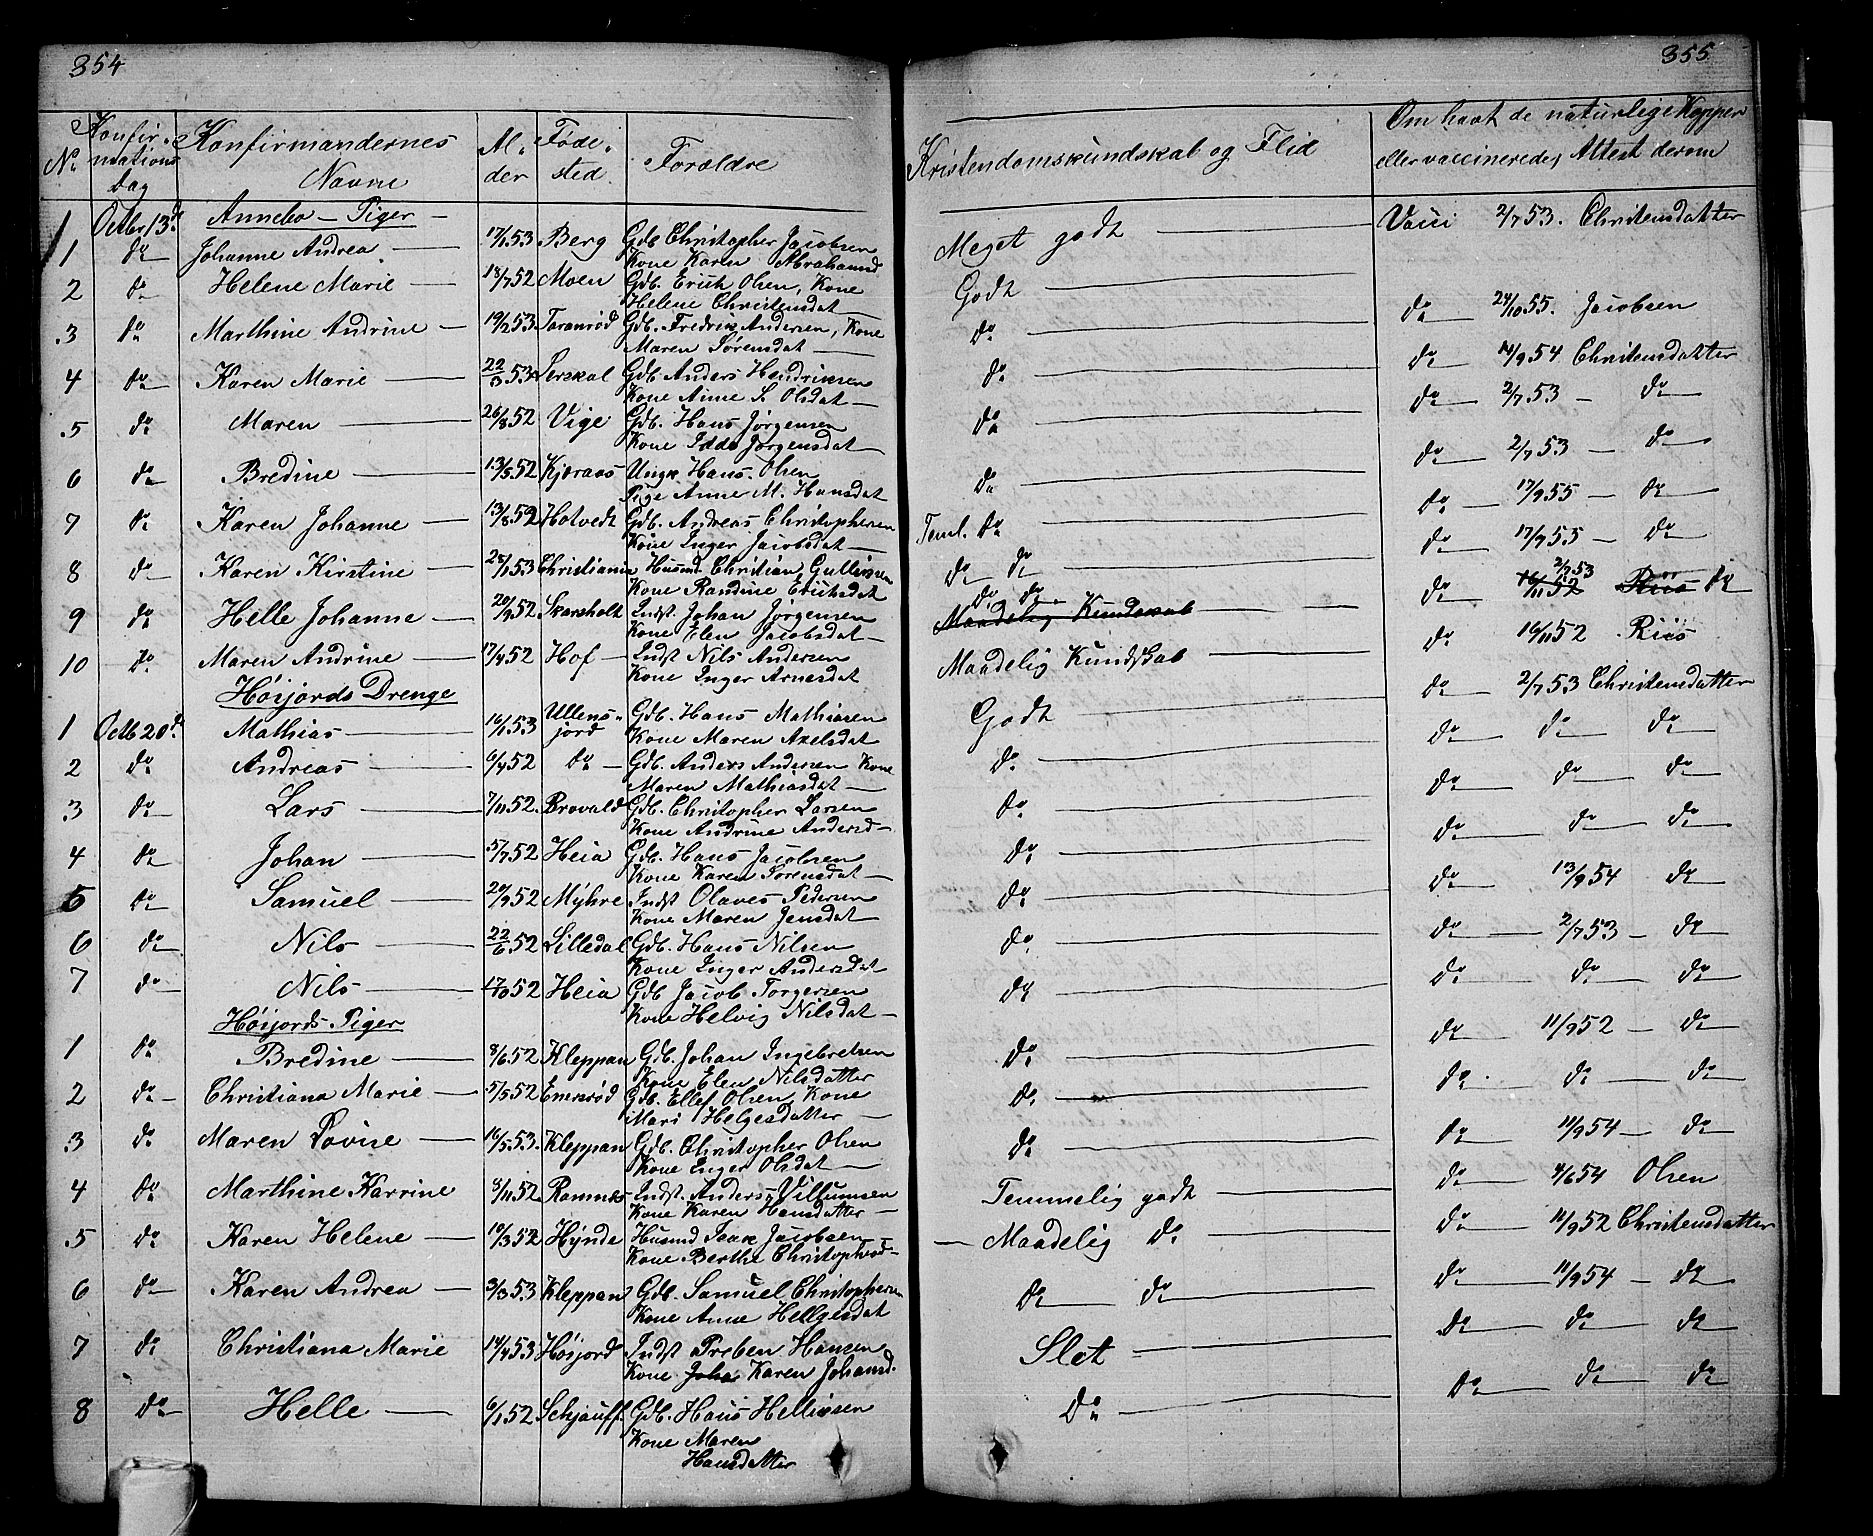 354
No
Konfir-
mations
Dag
Konfirmandernes
Navne
Al-
der
Føde-
sted
Forældre
Octbr 13d
Annebo - Piger
1 do Johanne Andrea 17/1 53 Berg Gdb Christopher Jacobsen
Kone Karen Abrahamsd
2 do Helene Marie 18/7 52 Moen Gdb. Erich Olsen, Kone
Helene Christensdat
3 do Marthine Andrine 19/2 53 Taranrød Gdb. Fredrik Andersen, Kone
Maren Sørensdat
4 do Karen Marie 22/3 53 Gdb. Anders Hendriksen
Kone Anne S. Olsdat
5 do Maren 26/8 52 Vige Gdb. Hans Jørgensen
Kone Idde Jørgensdat
6 do Bredine 13/5 52 Kjæraas Ungk Hans Olsen
Pige Anne M. Hansdat
7 do Karen Johanne 13/8 52 Hotvedt Gdb. Andreas Christophersen
Kone Inger Jacobsdat
8 do Karen Kirstine 28/1 53 Christiania Husmd Christian Gulliksen
Kone Randine Erichsdat
9 do Helle Johanne 20/9 52 Skarsholt Indst. Johan Jørgensen
Kone Elen Jacobsdat
10 do Maren Andrine 17/4 52 Hof Indst Nils Andersen
Kone Inger Arnesdat
Høijords Drenge
1 Octb 20d. Mathias 16/1 53 Ullens-
jord Gdb. Hans Mathiasen
Kone Maren Axelsdat
2 do Andreas 6/4 52 do Gdb. Anders Andersen Kone
Maren Mathiasdat
3 do Lars 7/11 52 Brovald Gdb. Christopher Larsen
Kone Andrine Andersd
4 do Johan 5/7 52 Heia Gdb. Hans Jacobsen
Kone Karen Sørensdat
5 do Samuel 20/9 52 Myhre Indst Olaves Pedersen
Kone Maren Jensdat
6 do Nils 22/6 52 Lilledal Gdb. Hans Nilsen
Kone Inger Andersdat
7 do Nils 52 Heia Gdb Jacob Torgersen
Kone Helvig Nilsdat
Høijords Piger
1 do Bredine 8/6 52 Kleppan Gdb. Johan Ingebretsen
Kone Elen Nilsdatter
2 do Christiana Marie 5/5 52 Gdb. Ellef Olsen Kone
Mari Helgesdatter
3 do Maren Lovise 16/5 53 Kleppan Gdb. Christopher Olsen
Kone Inger Olsdat
4 do Marthine Karrine 8/11 52 Ramnes Indst. Anders Villumsen
Kone Karen Hansdatter
5 do Karen Helene 10/3 52 Hynde Husmd Isak Jacobsen
Kone Berthe Christophsd
6 do Karen Andrea 3/3 53 Kleppan Gdb. Samuel Christophersen
Kone Anne Hellgesdat
7 do Christiana Marie 14/4 53 Høijord Indst Preben Hansen
Kone Joha Karen Johansd.
8 do Helle 6/1 52 Schjauff. Gdb. Hans Hellisen
Kone Maren
Hansdatter
355
Kristendomskundskab og Flid
Om havt de naturlige Kopper
eller vaccinerede, Attest derom
Meget godt Vacci 2/7 53. Christensdatter
Godt do 24/10 55. Jacobsen
do do 14/9 54 Christensdatter
do do 2/7 53 do
do do 2/7 53 do
do do 17/9 55 do
Teml. do do 17/9 55 do
do do do 16/11 52 2/7 53 Riis do
do do
Maadelig Kundskab do 16/11 52 Riis
Maadelig Kundskab do 2/7 53 Christensdatter
Godt do do do
do. do do do
do do do do
do do 13/9 54 do
do do 2/7 53 do
do do do do
do do 11/9 52 do
do do do do
do. do 11/9 54 do
do do 4/6 54 Olsen
Temmelig godt do 11/9 52 Christensdatter
Maadelig do do 11/9 54 do
do do do do do
Slet do do do
do